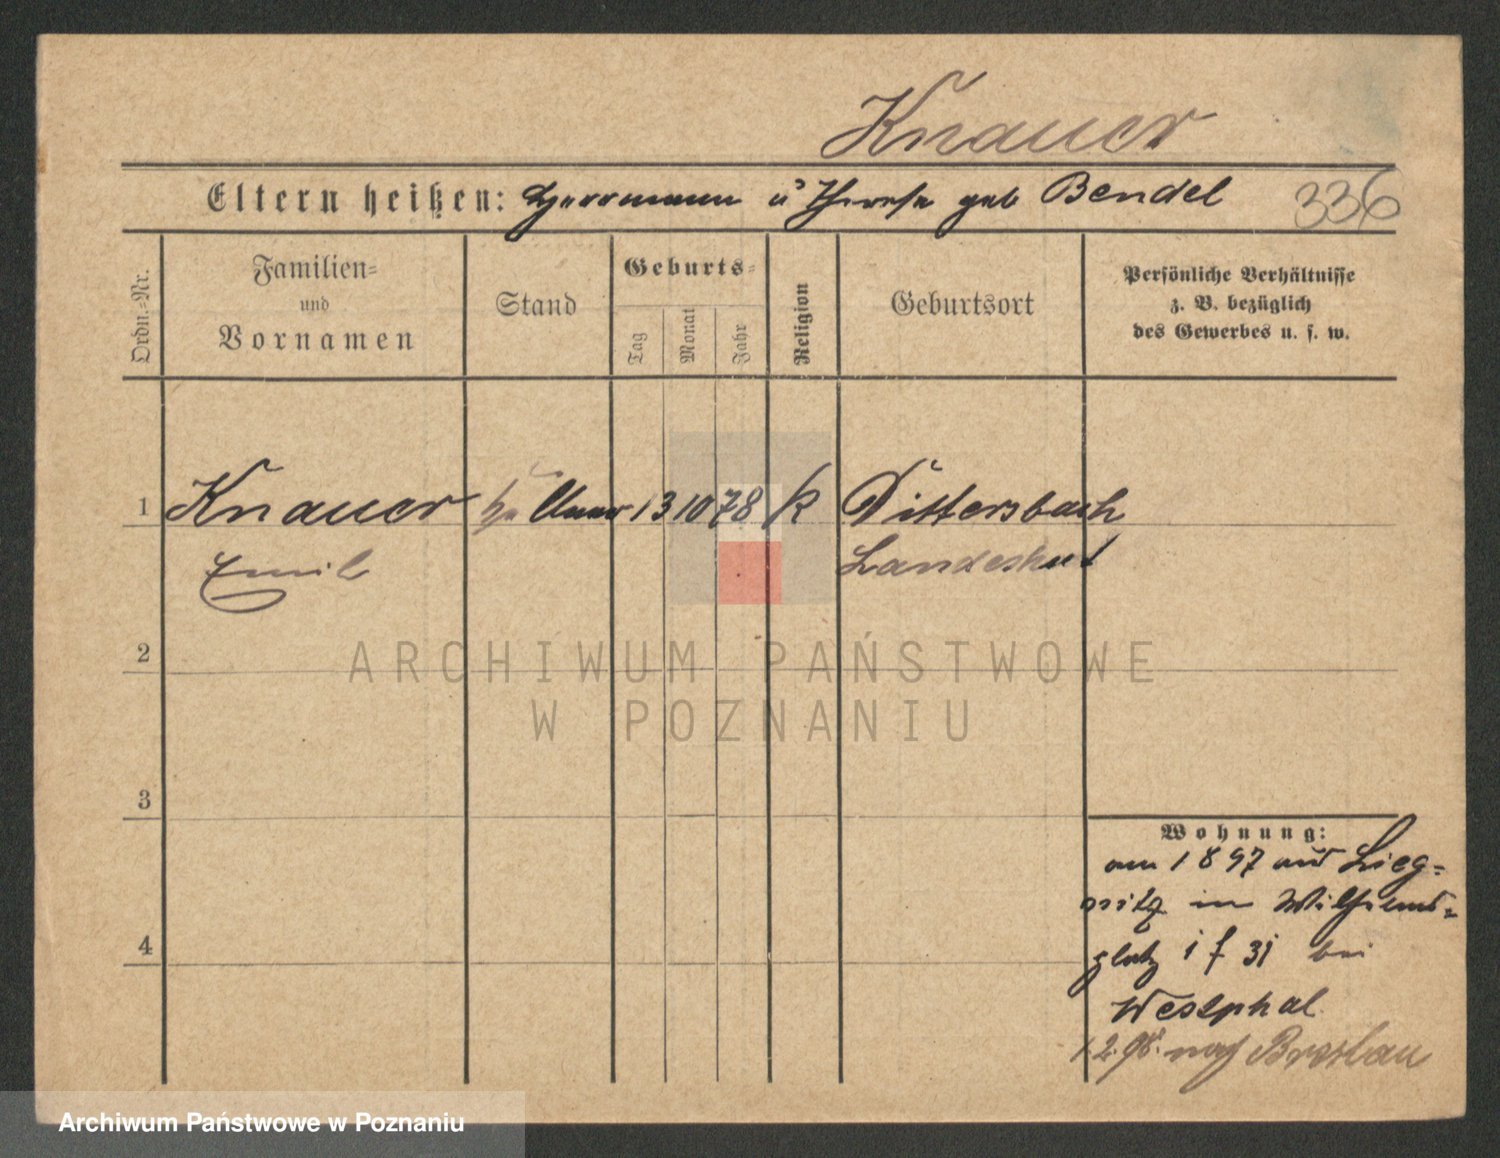 Knauer
Eltern heißen: Herrmann u Therese geb Bendel 336
Ordn.=Nr.
Familien=
und
Vornamen
Stand
Geburts=
Tag
Monat
Jahr
Religion
Geburtsort
Persönliche Verhältnisse
z. B. bezüglich
des Gewerbes u. s. w.
1 Knauer Kellner 13 10 78 k Dittersbach
Emil Landeshut
2
ARCHIWUM PAŃSTWOWE
W POZNANIU
3
Wohnung:
1897 aus Lieg=
nitz in Wilhelms=
platz 31 bei
4
Westphal
1.2.98. nach Breslau
Archiwum Państwowe w Poznaniu